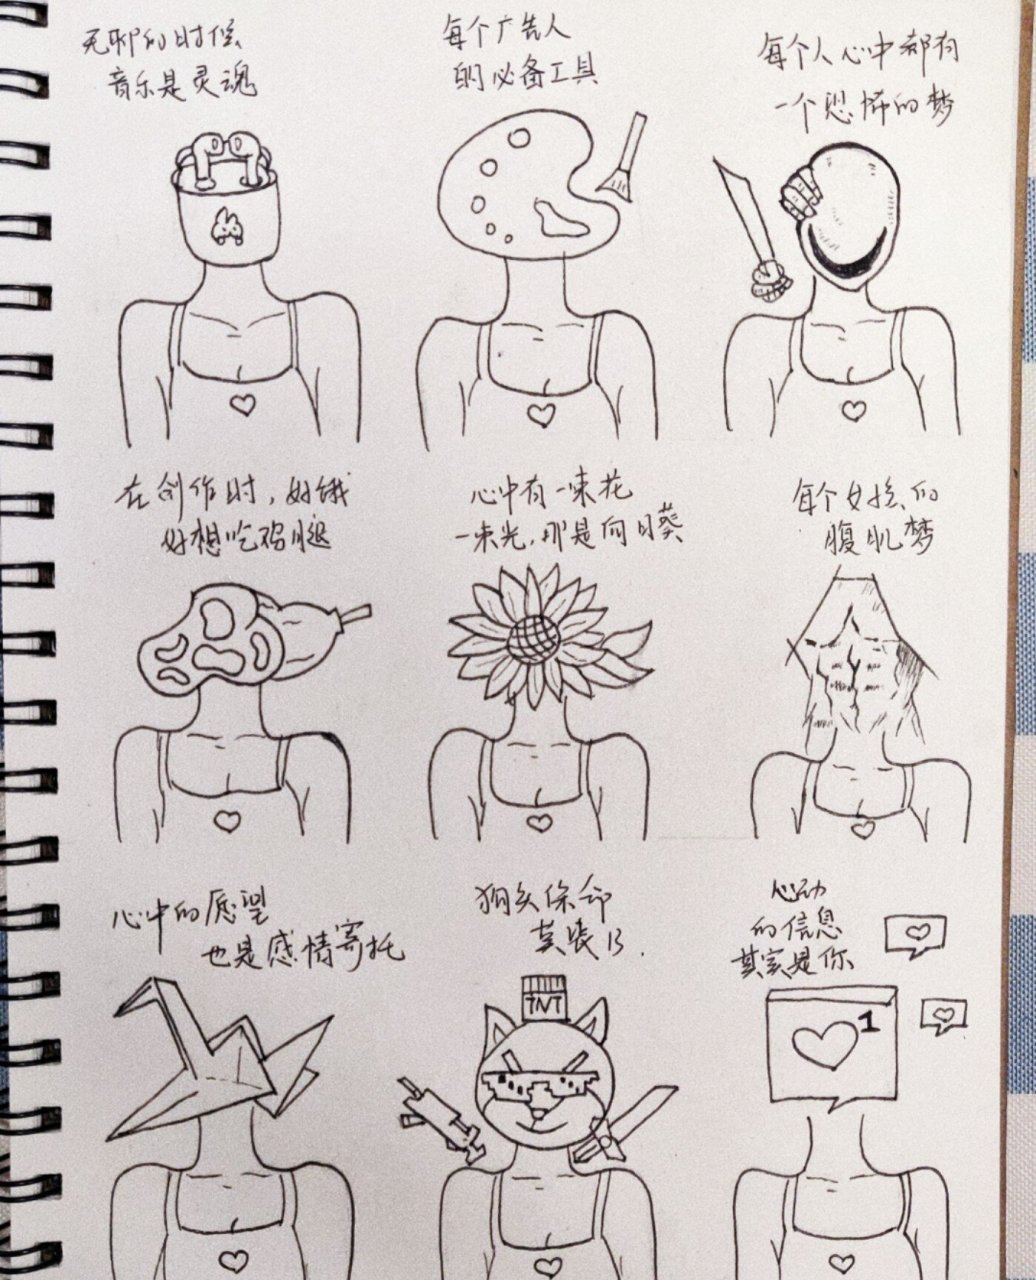 无聊的时候
音乐是灵魂
每个广告人
的必备工具
每个人心中都有
一个恐怖的梦
在创作时，好饿
好想吃鸡腿
心中有一束花
一束光，那是向日葵
每个女孩的
腹肌梦
心中的愿望
也是感情寄托
狗头保命
莫装13.
TNT
心动
的信息
其实是你
1